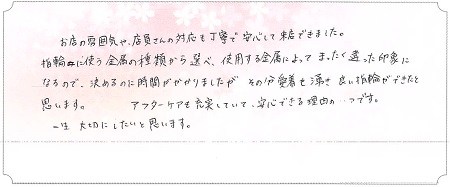 お店の雰囲気や、店員さんの対応も丁寧で安心して来店できました。
指輪に使う金属の種類から選べ、使用する金属によってまったく違った印象に
なるので、決めるのに時間がかかりましたが その分愛着も湧き 良い指輪ができたと
思います。 アフターケアも充実していて、安心できる理由の一つです。
一生 大切にしたいと思います。